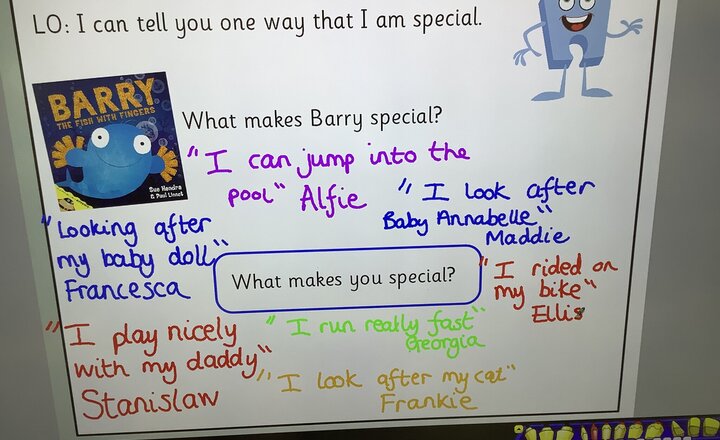 LO: I can tell you one way that I am special.
BARRY
THE FISH WITH FINGERS
Sue Hendra
& Paul Linnet
What makes Barry special?
"I can jump into the
pool" Alfie
"I look after
Baby Annabelle"
Maddie
"Looking after
my baby doll"
Francesca
What makes you special?
"I rided on
my bike"
Ellis
"I play nicely
with my daddy"
Stanislaw
"I run really fast"
Georgia
"I look after my cat"
Frankie